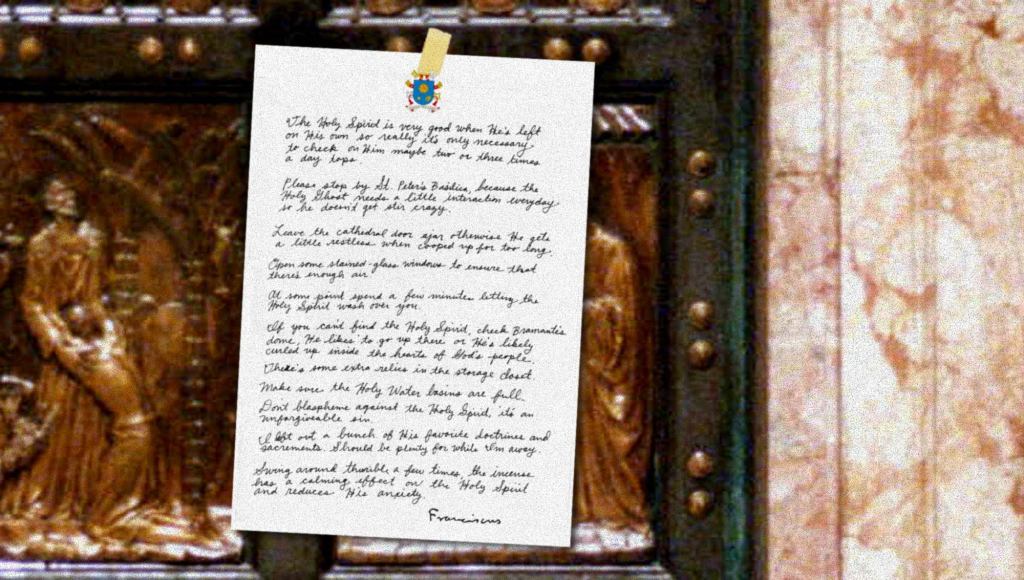 The Holy Spirit is very good when He's left
on His own so really it's only necessary
to check on Him maybe two or three times
a day tops.
Please stop by St. Peter's Basilica, because the
Holy Ghost needs a little interaction everyday
so he doesn't get stir crazy.
Leave the cathedral door ajar otherwise He gets
a little restless when cooped up for too long.
Open some stained-glass windows to ensure that
there's enough air
At some point spend a few minutes letting the
Holy Spirit wash over you.
If you can't find the Holy Spirit, check Bramante's
dome, He likes to go up there or He's likely
curled up inside the hearts of God's people.
There's some extra relics in the storage closet.
Make sure the Holy Water basins are full.
Don't blaspheme against the Holy Spirit, it's an
unforgiveable sin.
I left out a bunch of His favorite doctrines and
sacrements. Should be plenty for while I'm away.
Swing around thurible a few times, the incense
has a calming effect on the Holy Spirit
and reduces His anxiety.
Franciscus